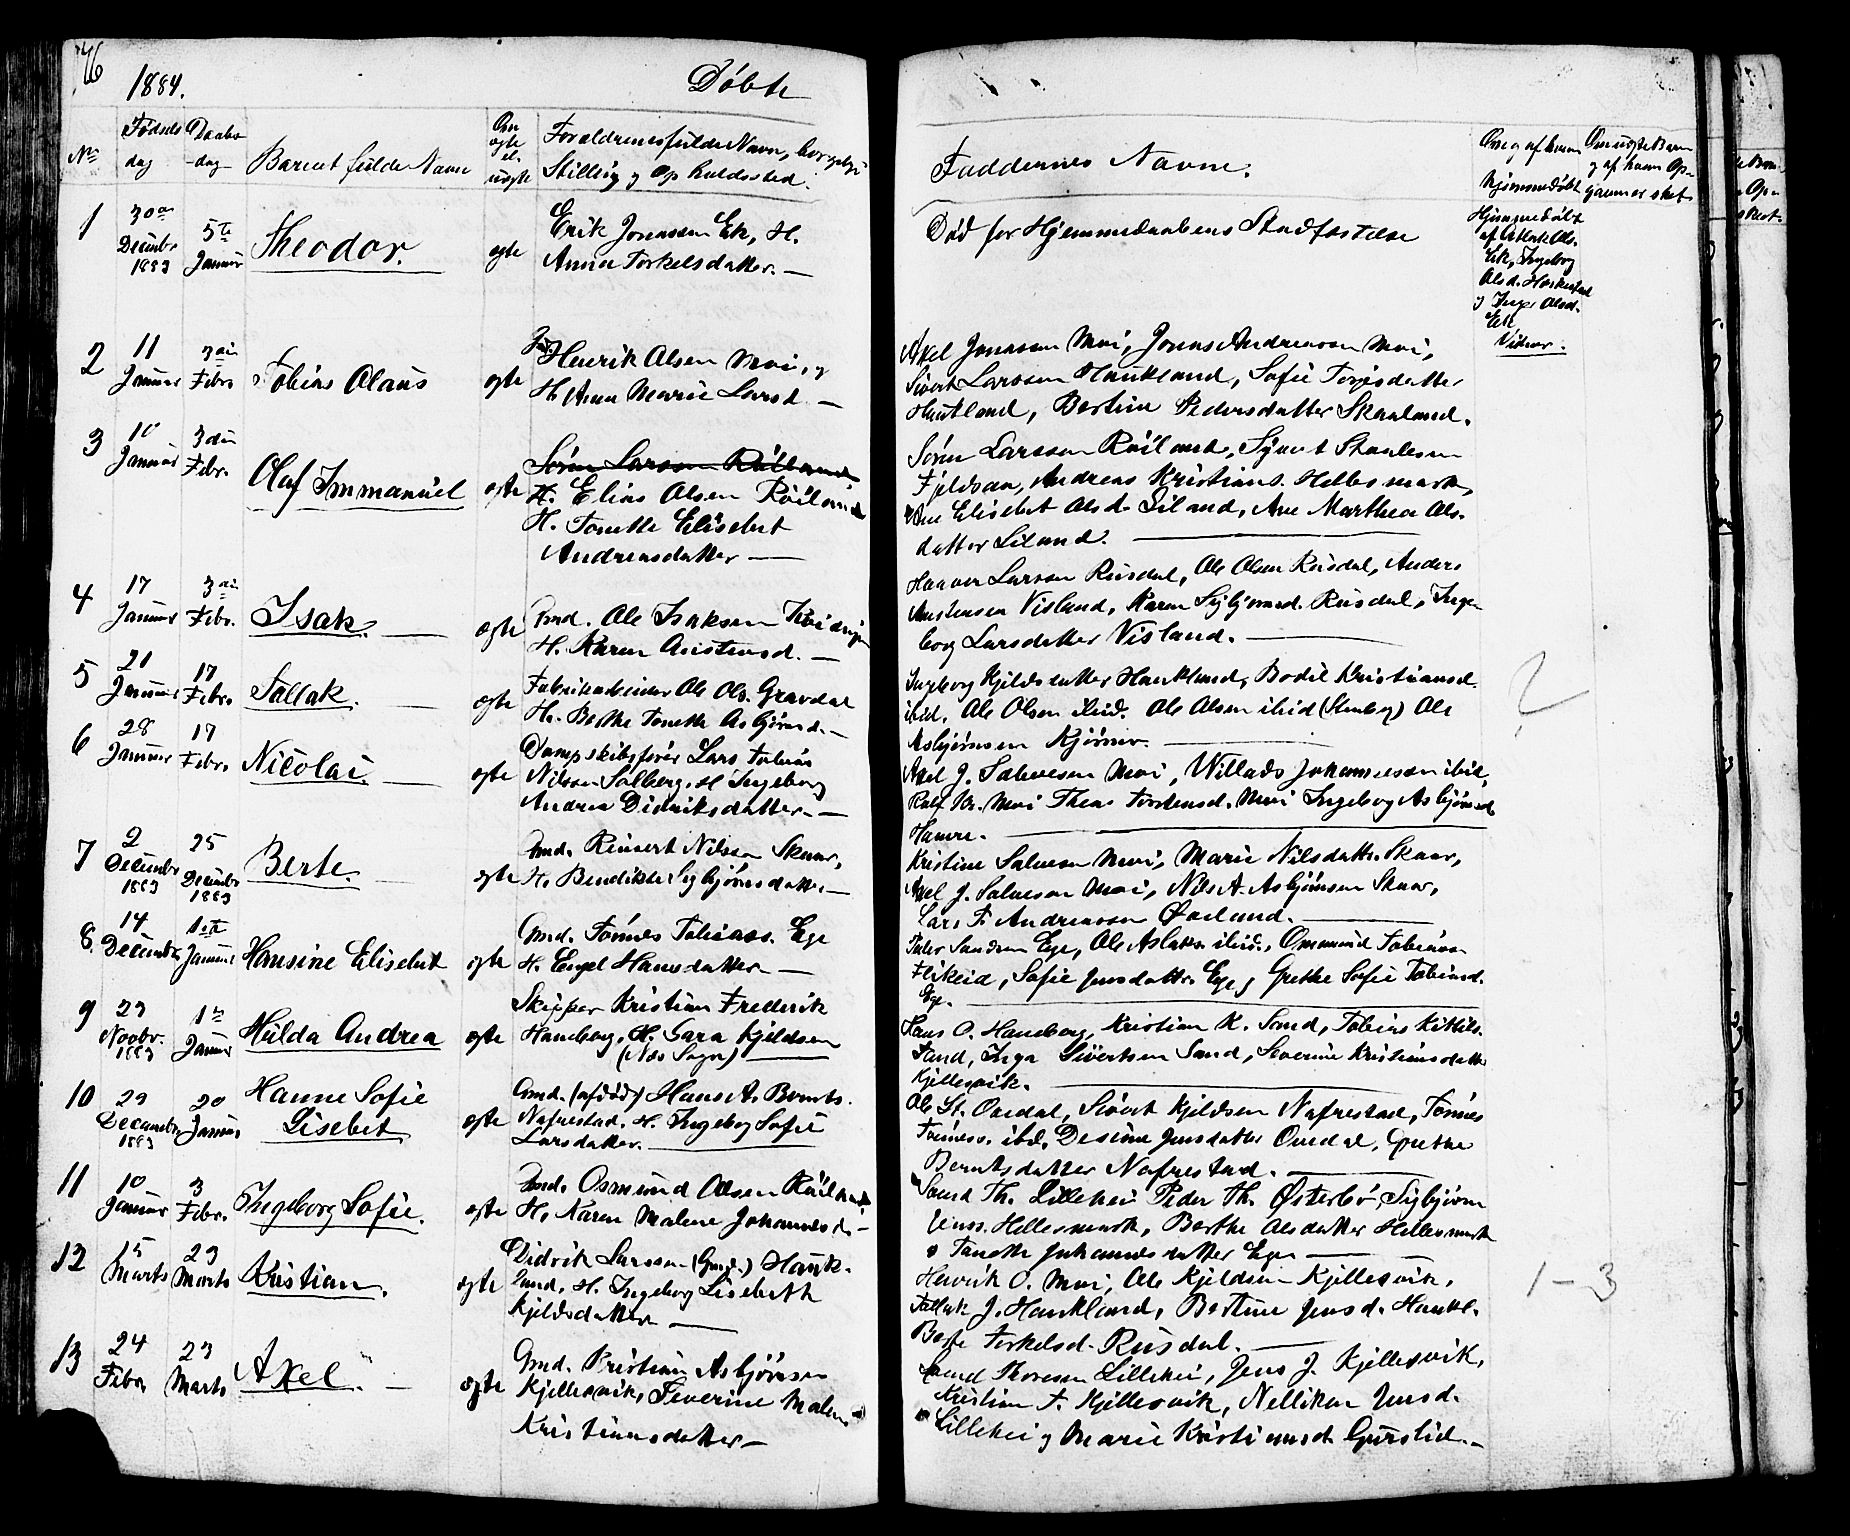 76
1884.
Døbte
No
Fødsels dag
Daabs dag
Barnet fulde Navn
Om ægte el. uægte
Forældrenes fulde Navn, borgerlige
Stilling og Opholdssted.
Faddernes Navne.
Om og af hvem
hjemmedøbt
Om uægte Barn
og af hvem Op-
gaven er sket
1
30te
Decembr
1883
5te
Januar
Theodor.
ægte
Erik Jonassen Eik, H.
Anna Torkelsdatter. —
Død før Hjemmedaabens Stadfæstelse
Hjemmedøbt
af Aslak Ols.
Eik, Ingeborg
Olsd.
og Inger Olsd.
Eik
Vidner.
2
11
Januar
3die
Febr.
Tobias Olaus
ægte
Henrik Olsen Moi, og
H. Anna Marie Larsd. —
Axel Jonassen Moi, Jonas Andreassen Moi,
Sivert Larssen Haukland, Sofie Torjesdatter
Haukland, Bertine Pedersdatter Skaaland.
3
10
Januar
3die
Febr.
Olaf Immanuel
ægte
Søren Larssen Røiland
H. Elias Olsen Røiland
H. Tonette Elisebet
Andreasdatter —
Søren Larssen Røiland, Syvert Staalesen
Fjeldsaa, Andreas Kristians. Hellesmark,
Ane Elisebet Olsd. Liland, Ane Marthea Ols-
datter Liland. —
4
17
Januar
3die
Febr.
Isak. —
ægte
Gmd. Ole Isaksen
H. Karen Austensd. —
Haaver Larssen Rusdal, Ole Olsen Rusdal, Anders
Austensen Visland, Karen Sigbjørnsd. Rusdal, Inge-
borg Larsdatter Visland. —
5
21
Januar
17
Febr.
Tallak.
ægte
Fabrikarbeider Ole Ols. Gravdal
H. Berthe Tonette Asbjørnsd. —
Ingeborg Kjeldsdatter Haukland, Bodil Kristiansd.
ibid, Ole Olsen ibid. Ole Olsen ibid (Stenberg) Ole
Asbjørnsen Kjørner. —
6
28
Januar
17
Febr.
Nicolai —
ægte
Dampskibsfører Lars Tobias
Nilssen Solberg, H. Ingeborg
Andrea Didriksdatter. —
Axel J. Salvesen Moi, Willads Johannessen ibid,
Moi Thea Tordensd. Moi Ingeborg Asbjørnsd
Hamre. —
7
2
Decembr
1883
25
Decembr
1883
Berte. —
ægte
Gmd. Reinert Nilssen Skaar,
H. Bendikte Sigbjørnsdatter —
Kristine Salvesen Moi, Marie Nilsdatter Skaar,
Axel J. Salvesen Moi, Nils A. Asbjørnsen Skaar,
Lars T. Andreassen Øvelund. —
8.
14
Decembr
1ste
Januar
Hansine Elisebet
ægte
Gmd. Tønnes Tobiass. Ege
H. Engel Hansdatter —
Peder Sandsen Ege, Ole Aslaks. ibid., Ommund Tobiassen
Flikeid, Sofie Jensdatter Ege, Grethe Sofie Tobiasd.
Ege. —
9
23
Novbr.
1883
1ste
Januar
Hilda Andrea
ægte
Skipper Kristian Frederik
Haneborg, H. Sara Kjeldsen
(Næs Sogn) —
Hans O. Haneborg, Kristian K. Sand, Tobias Kittils.
Sand, Inga Sivertsen Sand, Severine Kristiansdatter
Kjellesvik. —
10
29
Decembr.
1883
20
Januar
Hanne Sofie
Lisebet
ægte
Gmd. (afdød) Hans A. Bernts.
Nafrestad, H. Ingeborg Sofie
Larsdatter. —
Ole St. Ovedal, Sivert Kjeldsen Nafrestad, Tønnes
Tønness. ibd, Desine Jensdatter Ovedal, Grethe
Berntsdatter Nafrestad. —
11
10
Januar
3
Febr.
Ingeborg Sofie.
ægte
Gmd. Osmund Olsen Røiland
H. Karen Malene Johannesd. —
Sand Th. Lillehei Peder Th. Østerbø, Sigbjørn
Jenss. Hellesmark, Berthe Olsdatter Hellesmark
o Tanette Johannesdatter Ege —
12
15
Marts
23
Marts
Kristian.
ægte
Didrik Larssen (Gmd.) Hauk-
land, H. Ingeborg Lisebeth
Kjeldsdatter —
Henrik O. Moi, Ole Kjeldsen Kjellesvik,
Tallak J. Haukland, Bertine Jensd. Haukl.
Berte Torkelsd. Rusdal. —
1-3
13
24
Febr
23
Marts
Axel. —
ægte
Gmd. Kristian Asbjørnsen
Kjellesvik, Severine Malene
Kristiansdatter —
Sand Thoresen Lillehei, Jens J. Kjellesvik,
Kristian T. Kjellesvik, Nellikan Jensd.
Lillehei og Marie Kristiansd. Gurslid. —